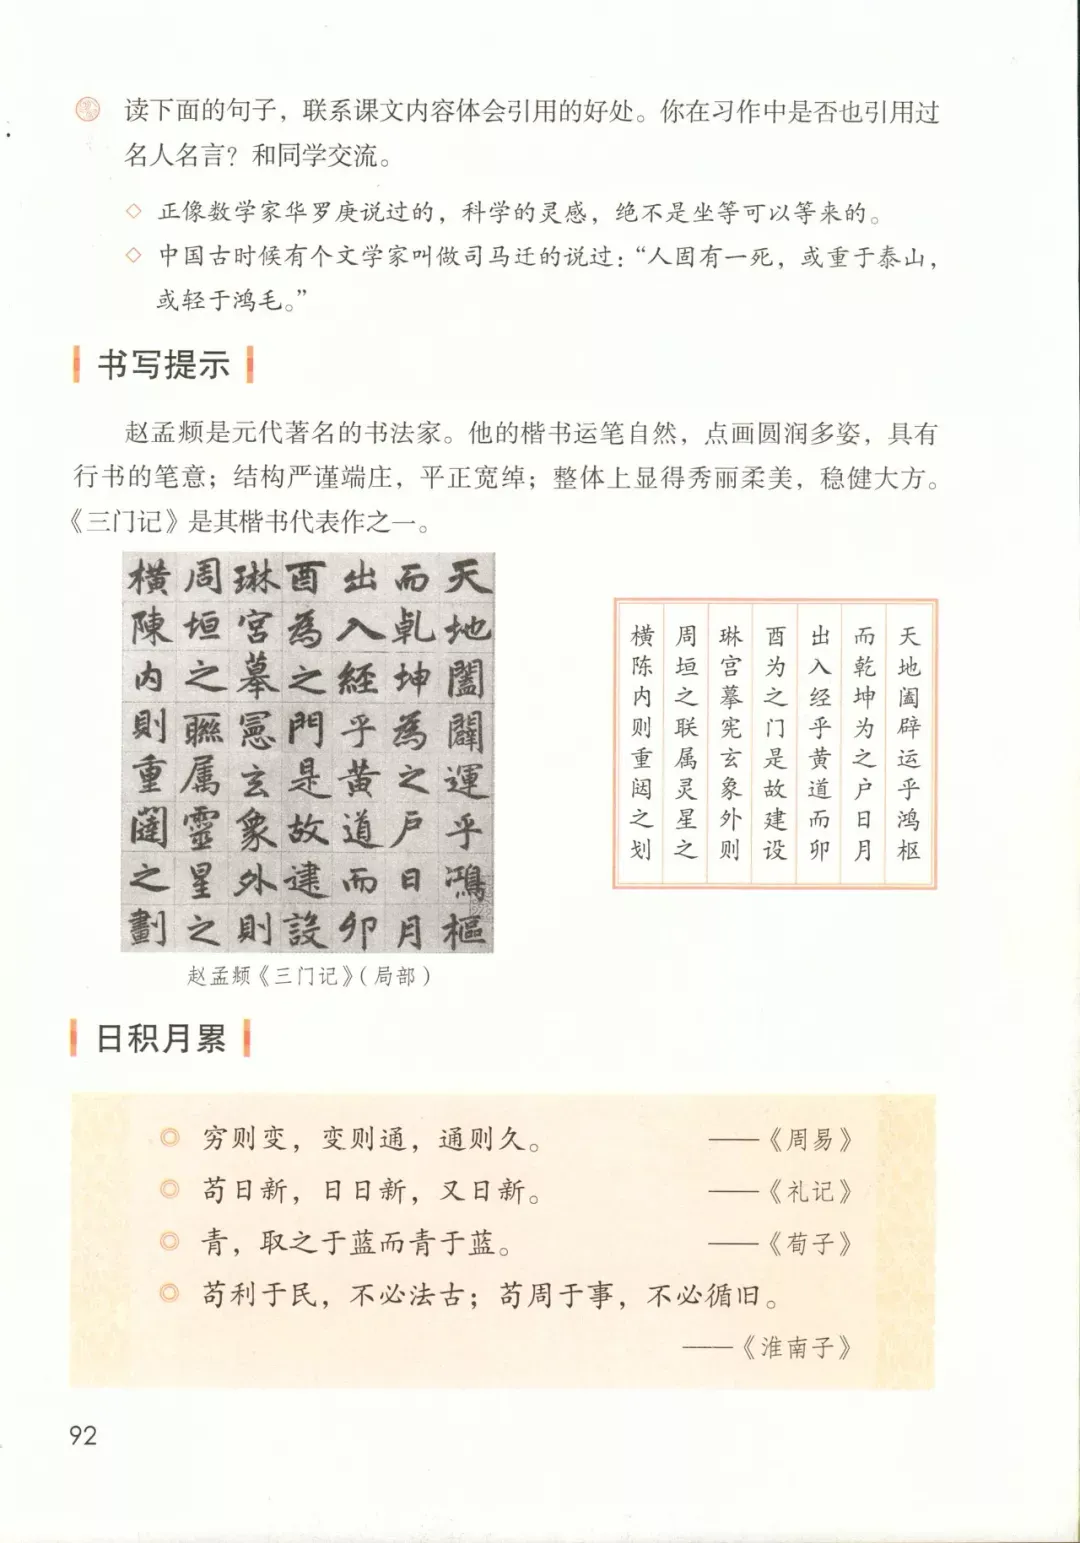 读下面的句子，联系课文内容体会引用的好处。你在习作中是否也引用过
名人名言？和同学交流。
◇ 正像数学家华罗庚说过的，科学的灵感，绝不是坐等可以等来的。
◇ 中国古时候有个文学家叫做司马迁的说过：“人固有一死，或重于泰山，
或轻于鸿毛。”
书写提示
赵孟𫖯是元代著名的书法家。他的楷书运笔自然，点画圆润多姿，具有
行书的笔意；结构严谨端庄，平正宽绰；整体上显得秀丽柔美，稳健大方。
《三门记》是其楷书代表作之一。
天地闔闢運乎鴻樞
而乹坤為之戶日月
出入經乎黄道而卯
酉為之門是故建設
琳宮摹憲玄象外則
周垣之聮属靈星之
橫陳内則重闥之劃
天地阖辟运乎鸿枢
而乾坤为之户日月
出入经乎黄道而卯
酉为之门是故建设
琳宫摹宪玄象外则
周垣之联属灵星之
横陈内则重闼之划
赵孟𫖯《三门记》（局部）
日积月累
◎ 穷则变，变则通，通则久。 ——《周易》
◎ 苟日新，日日新，又日新。 ——《礼记》
◎ 青，取之于蓝而青于蓝。 ——《荀子》
◎ 苟利于民，不必法古；苟周于事，不必循旧。
——《淮南子》
92